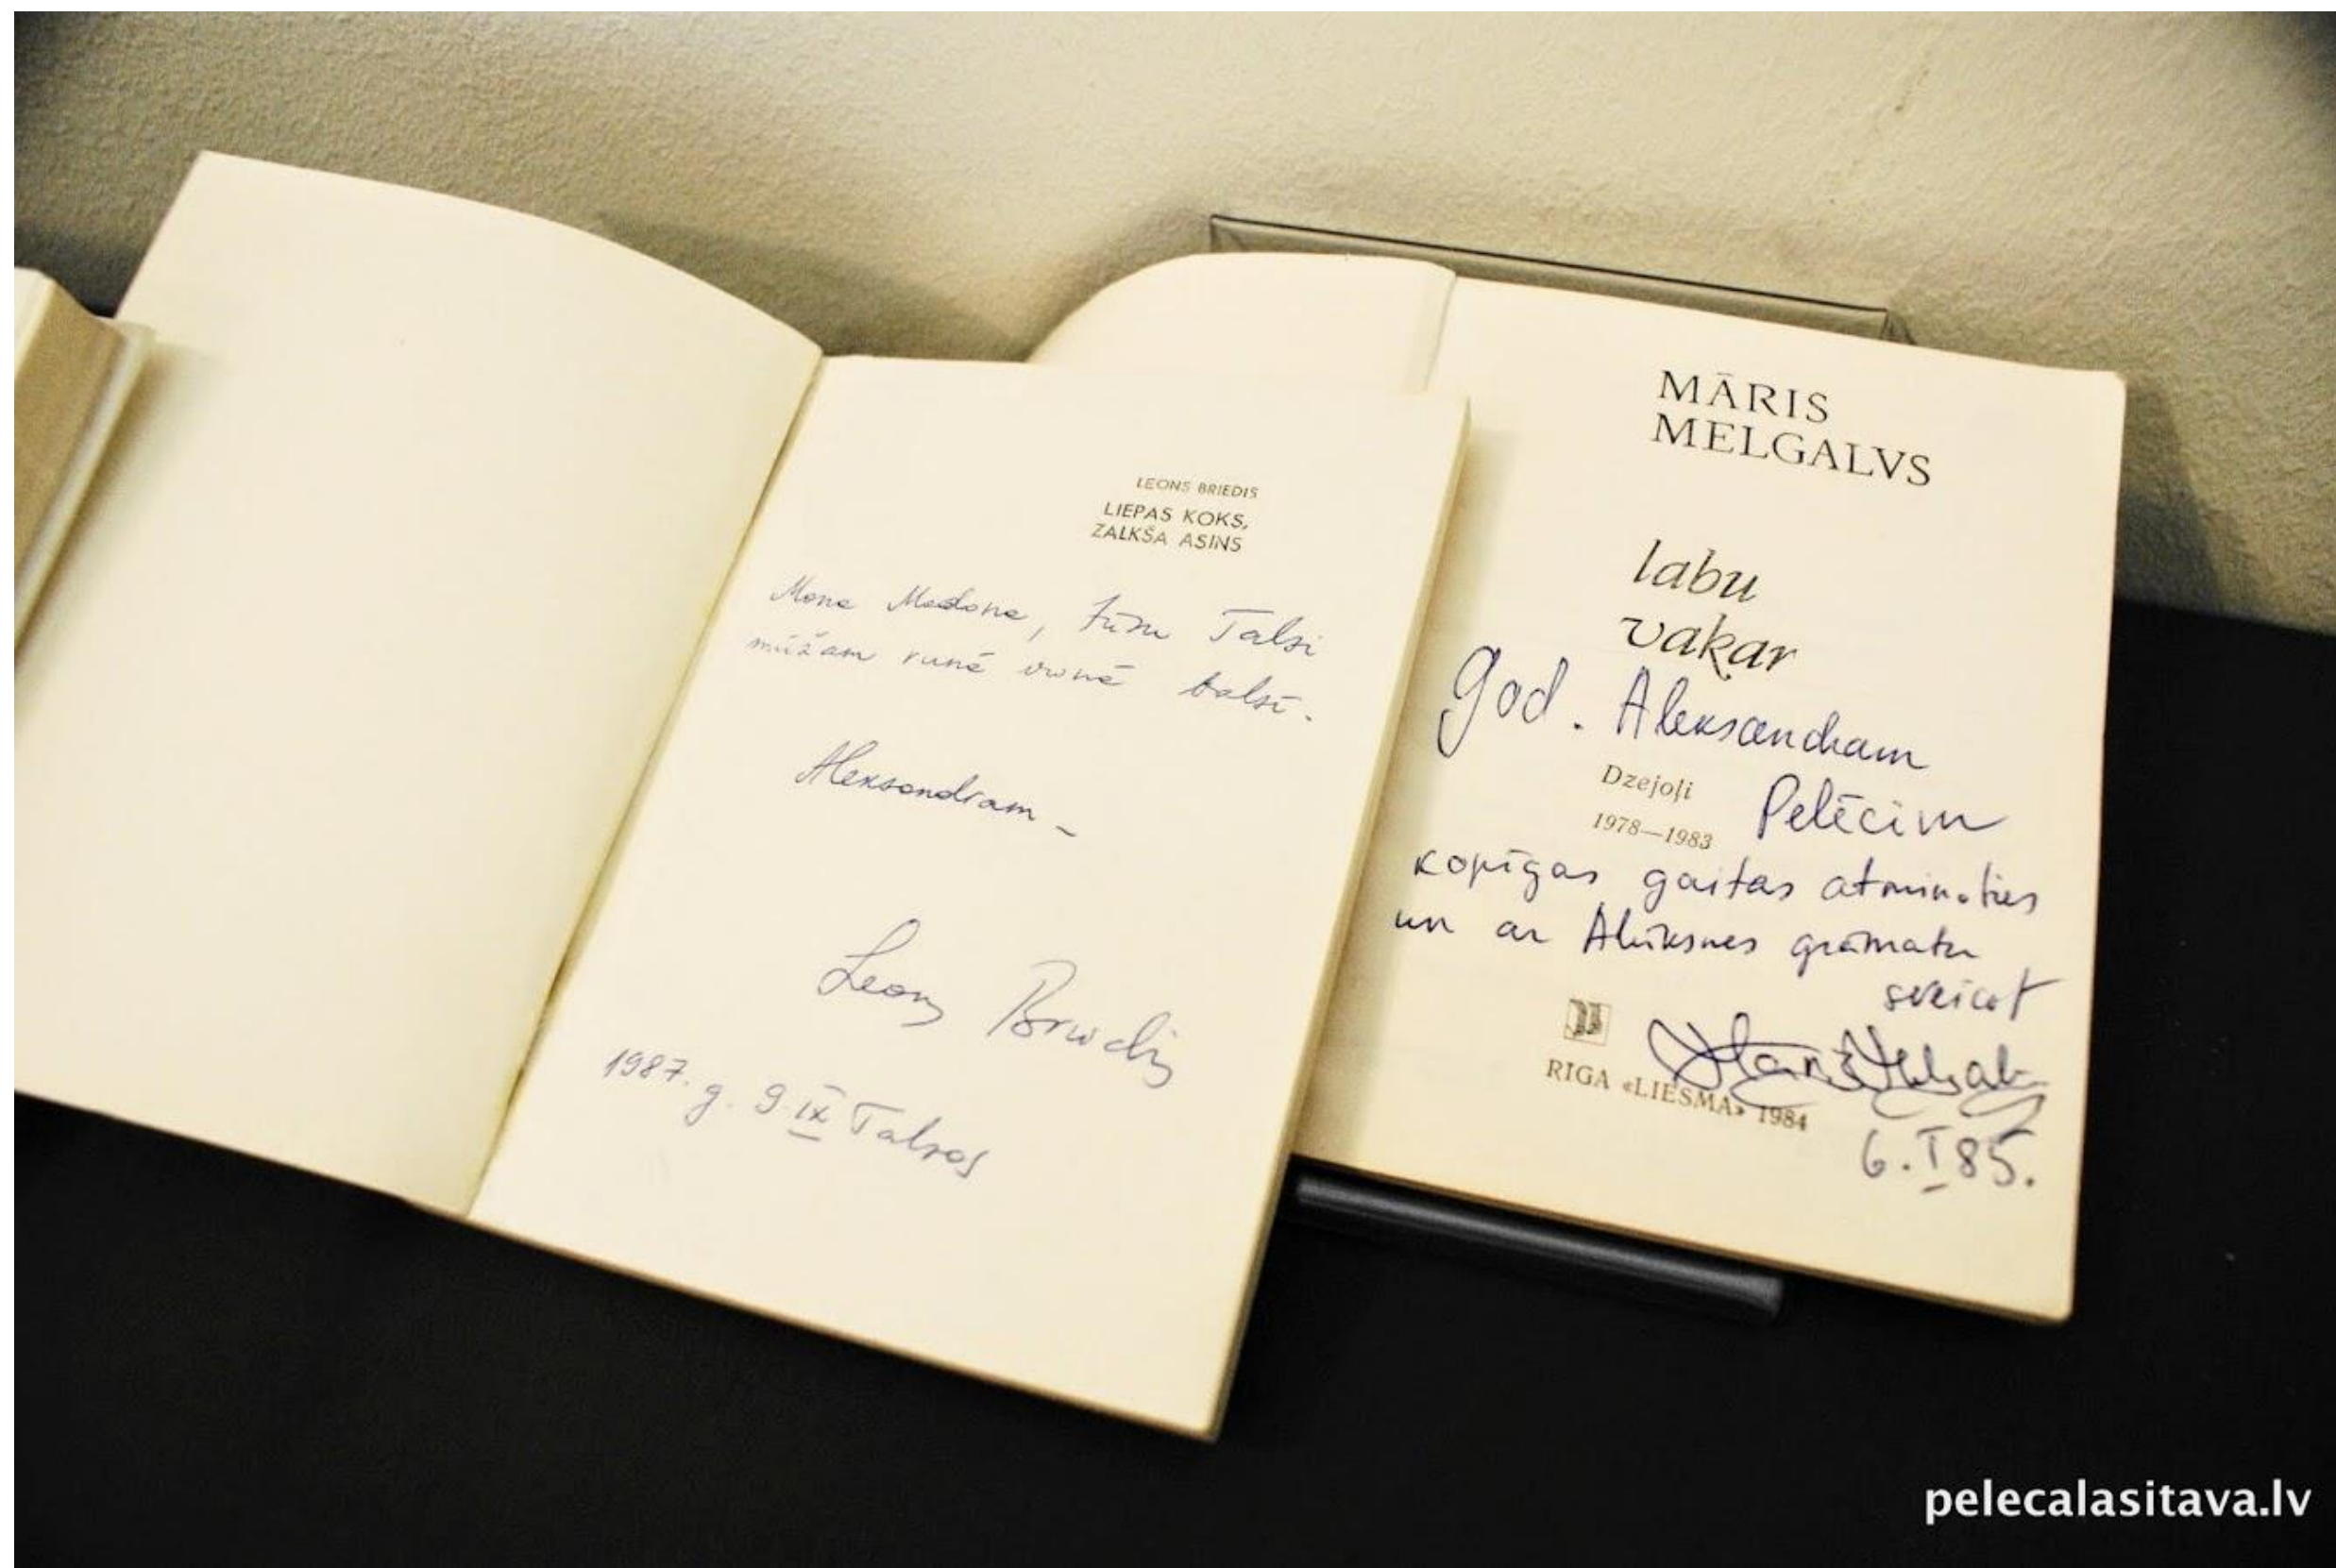 LEONS BRIEDIS
LIEPAS KOKS,
ZALKŠA ASINS
Mana Madona, Jūsu Talsi
mūžam runā vienā balsī.
Aleksandram –
Leons Briedis
1987. g. 9 IX Talsos
MĀRIS
MELGALVS
labu
vakar
God. Aleksandram
Dzejoļi
Pelēcim
1978—1983
kopīgas gaitas atminoties
un ar Alūksnes grāmatu
sveicot
RIGA «LIESMA» 1984
6. I 85.
pelecalasitava.lv